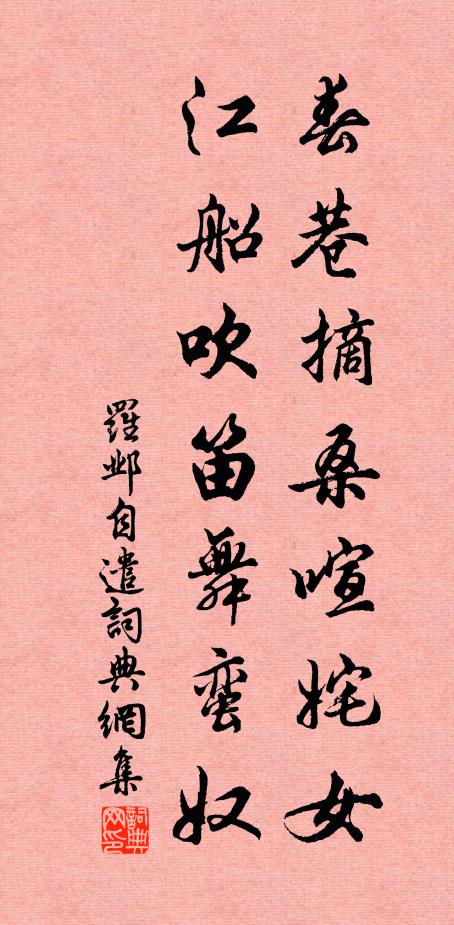 春巷摘桑喧姹女
江船吹笛舞蛮奴
羅邺自遣詞典網集
詞典网印